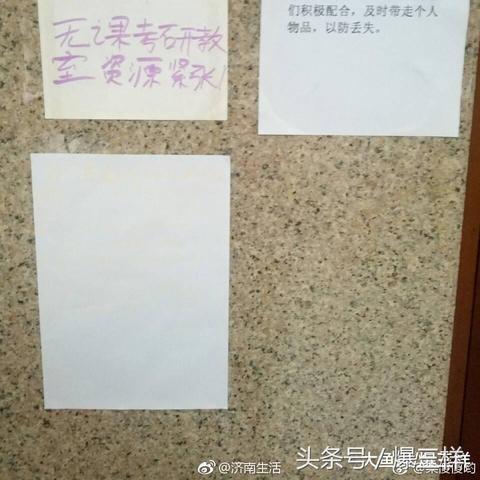 无课考研教
室资源紧张
们积极配合，及时带走个人
物品，以防丢失。
@济南生活